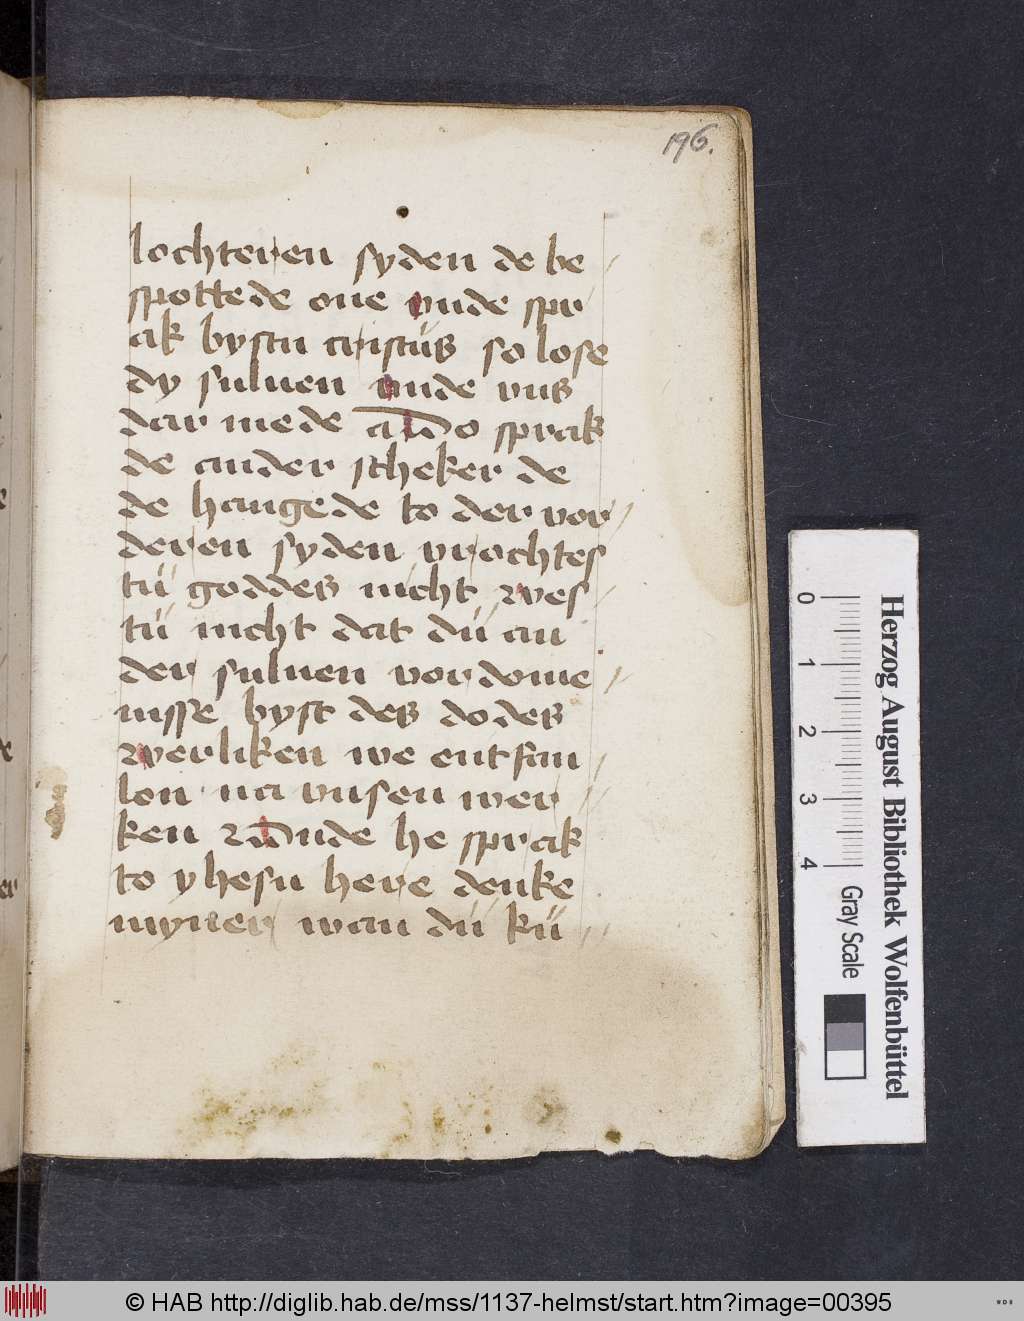 196.
lochteren syden de be
spottede one vnde spr
ak bystu cristus so lose
dy suluen vnde vns
dar mede Do sprak
de ander scheker de
de hangede to der vor
deren syden vrochtes
tu goddes nicht wes
tu nicht dat dü an
der suluen vordome
nisse byst des dodes
werliken we entfan
len na vnsen wer
ken vnde he sprak
to yhesu here denke
myner wan dü kü
Herzog August Bibliothek Wolfenbüttel
0 1 2 3 4
Gray Scale
© HAB http://diglib.hab.de/mss/1137-helmst/start.htm?image=00395